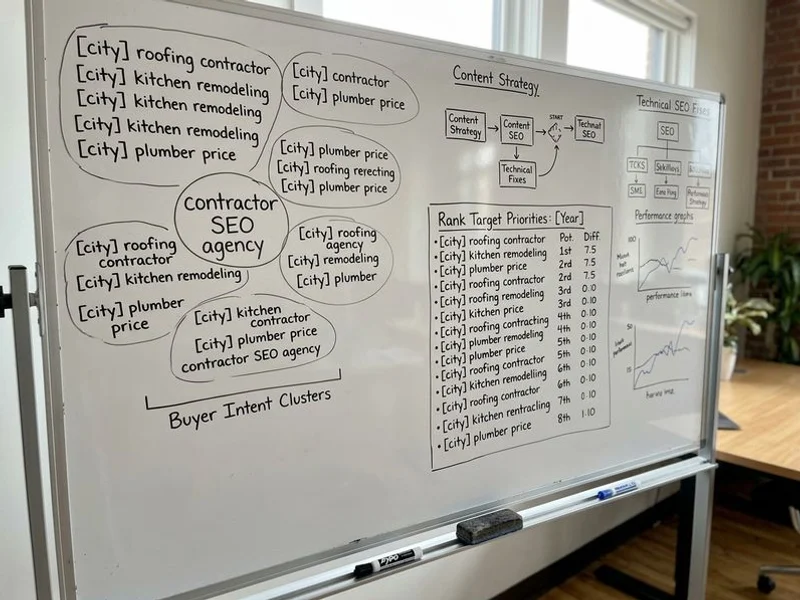 [city] roofing contractor
[city] kitchen remodeling
[city] kitchen remodeling
[city] kitchen remodeling
[city] plumber price
[city] contractor
[city] plumber price
[city] plumber price
[city] roofing rerecting
[city] plumber price
contractor
SEO
agency
[city] roofing
contractor
[city] kitchen remodeling
[city] plumber
price
[city] roofing
agency
[city] remodeling
[city] plumber
[city] kitchen
contractor
[city] plumber price
contractor SEO agency
Buyer Intent Clusters
Content Strategy
Content
Strategy
Content
SEO
START
Technat
SEO
Technical
Fixes
Rank Target Priorities: [Year]
• [city] roofing contractor Pot. Diff
• [city] kitchen remodeling 1st 7.5
• [city] plumber price 2nd 7.5
• [city] roofing contractor 2nd 7.5
• [city] roofing remodeling 3rd 0.10
• [city] kitchen price 3rd 0.10
• [city] roofing contracting 4th 0.10
• [city] plumber remodeling 4th 0.10
• [city] plumber price 5th 0.10
• [city] roofing contractor 5th 0.10
• [city] kitchen remodeling 6th 0.10
• [city] roofing contractor 6th 0.10
• [city] kitchen rentracling 7th 0.10
• [city] plumber price 8th 1.10
Technical SEO Fixes
SEO
TCKS
SMS
Performance
Strategy
Performance graphs
100
performance
50
EXPO